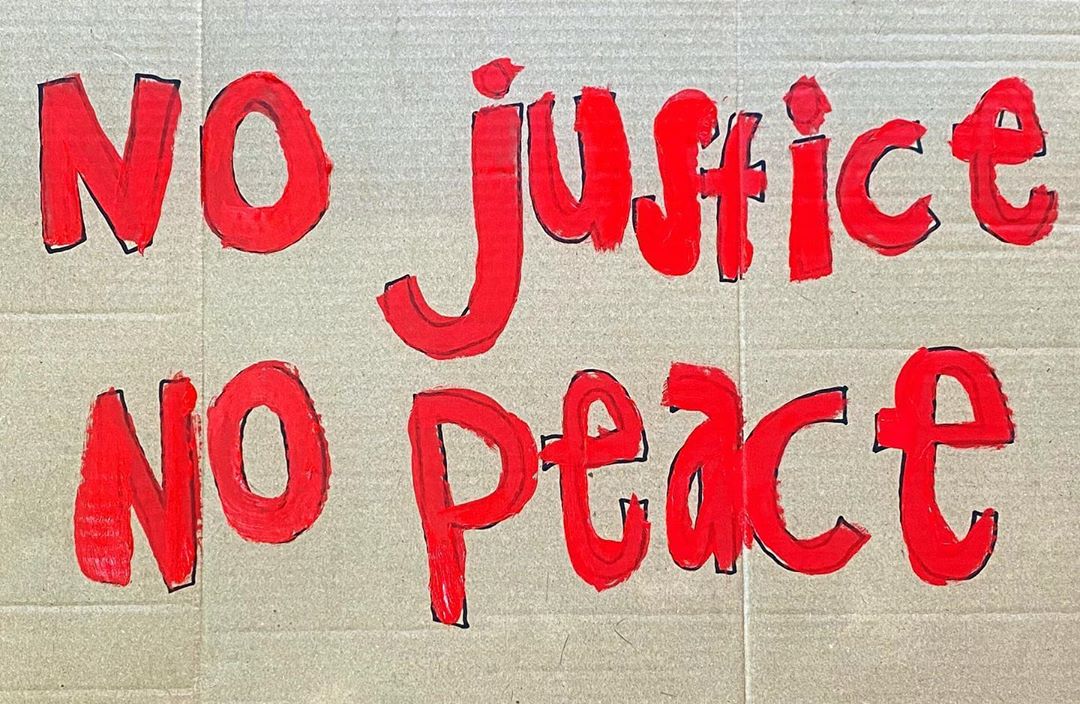 NO justice
NO peace